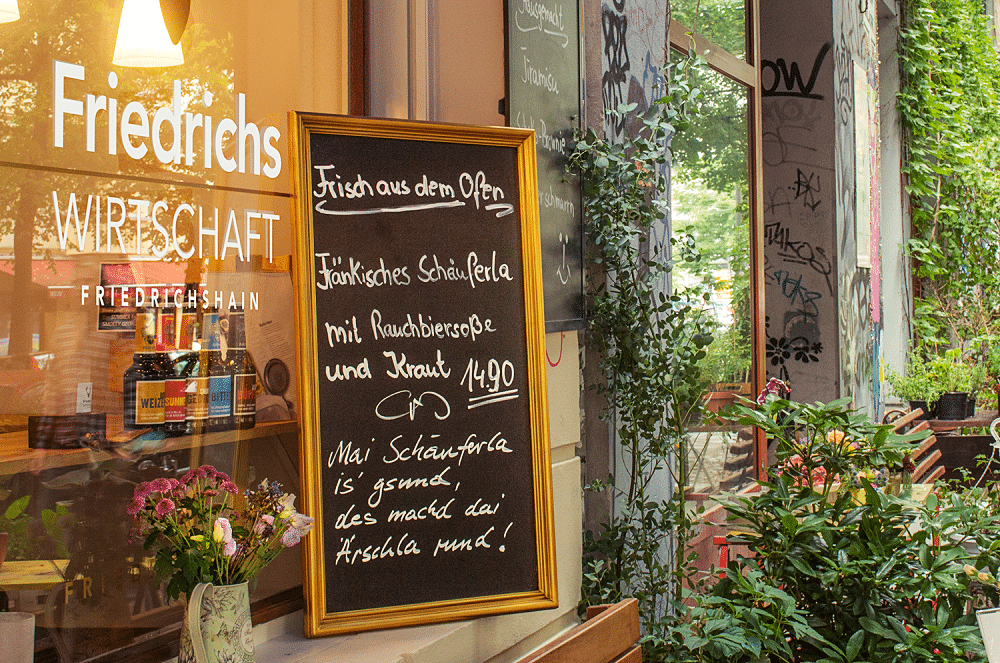 Friedrichs
WIRTSCHAFT
FRIEDRICHSHAIN
Frisch aus dem Ofen
Fränkisches Schäuferla
mit Rauchbiersoße
und Kraut 14.90
Mai Schäuferla
is' gsund,
des machd dai
Ärschla rund!
Hausgemacht
Tiramisu